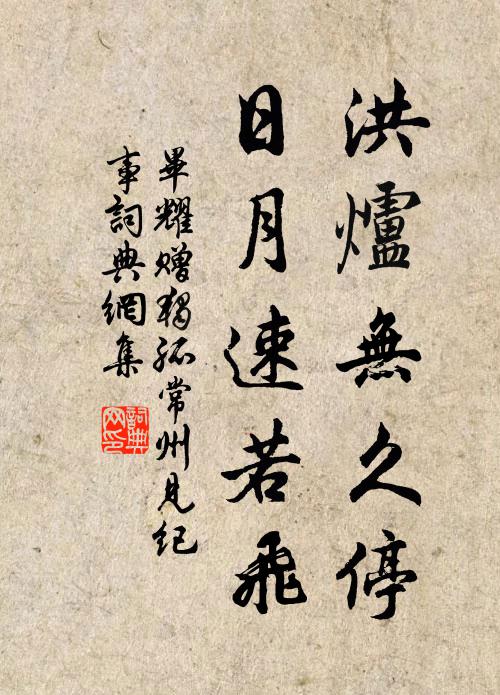 洪爐無久停
日月速若飛
畢耀贈獨孤常州見紀
事詞典網集
詞典网印